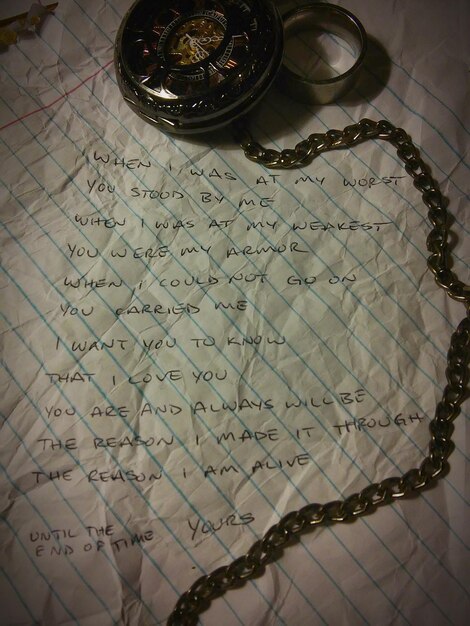 WHEN I WAS AT MY WORST
YOU STOOD BY ME
WHEN I WAS AT MY WEAKEST
YOU WERE MY ARMOR
WHEN I COULD NOT GO ON
YOU CARRIED ME
I WANT YOU TO KNOW
THAT I LOVE YOU
YOU ARE AND ALWAYS WILL BE
THE REASON I MADE IT THROUGH
THE REASON I AM ALIVE
UNTIL THE
END OF TIME
YOURS